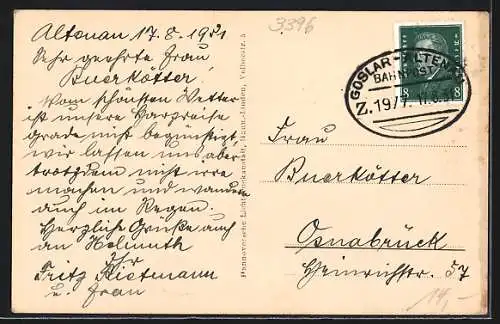 Altenau 17.8.1931
Sehr geehrte Frau
Buerkötter!
Vom schönsten Wetter
ist unsere Harzreise
grade nicht begünstigt,
wir lassen uns aber
trotzdem nicht irre
machen und wandern
auch im Regen.
Herzliche Grüße auch
an Helmuth
Ihr
Fritz Rietmann
u. Frau
Hannoversche Lichtdruckanstalt, Hann.-Linden, Velberstr. 5
3396
GOSLAR-ALTENAU
BAHNPOST
Z.1977
8 8
Frau
Buerkötter
Osnabrück
Heinrichstr. 57
14,-